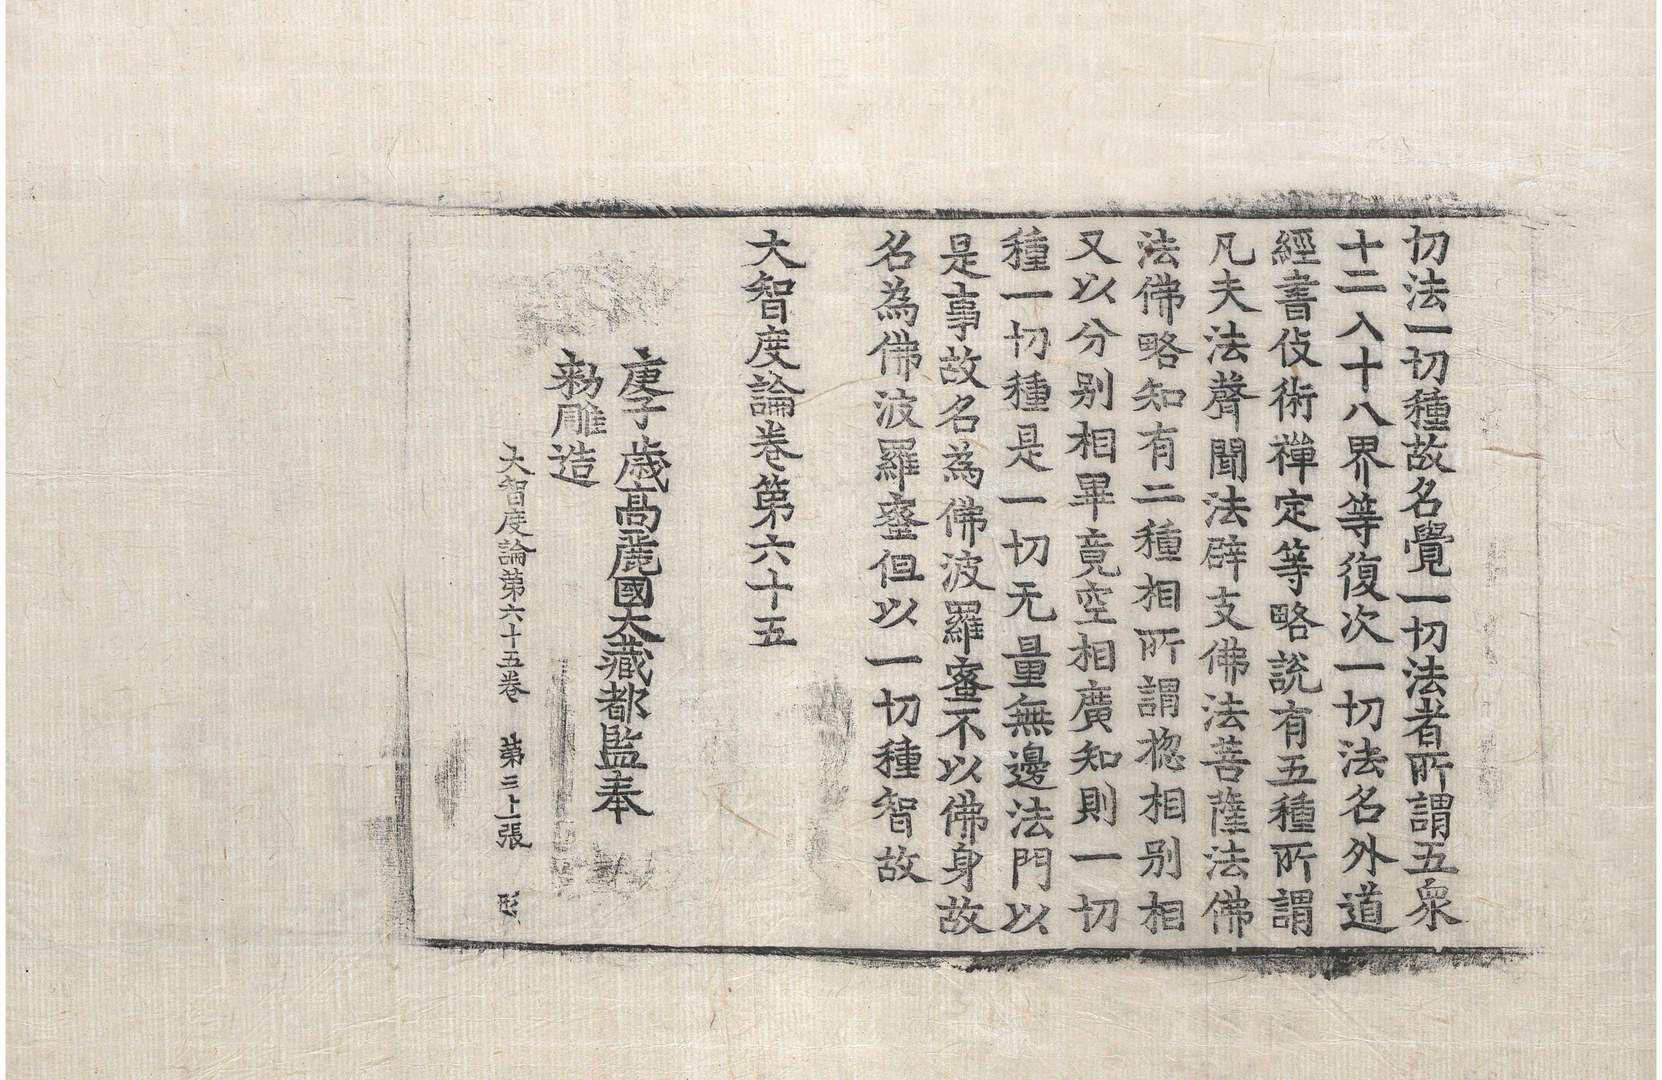 切法一切種故名覺一切法者所謂五衆
十二入十八界等復次一切法名外道
經書伎術禪定等略說有五種所謂
凡夫法聲聞法辟支佛法菩薩法佛
法佛略知有二種相所謂揔相別相
又以分別相畢竟空相廣知則一切
種一切種是一切无量無邊法門以
是事故名為佛波羅蜜不以佛身故
名為佛波羅蜜但以一切種智故
大智度論卷第六十五
庚子歲高麗國大藏都監奉
勑雕造
大智度論第六十五卷 第三上張